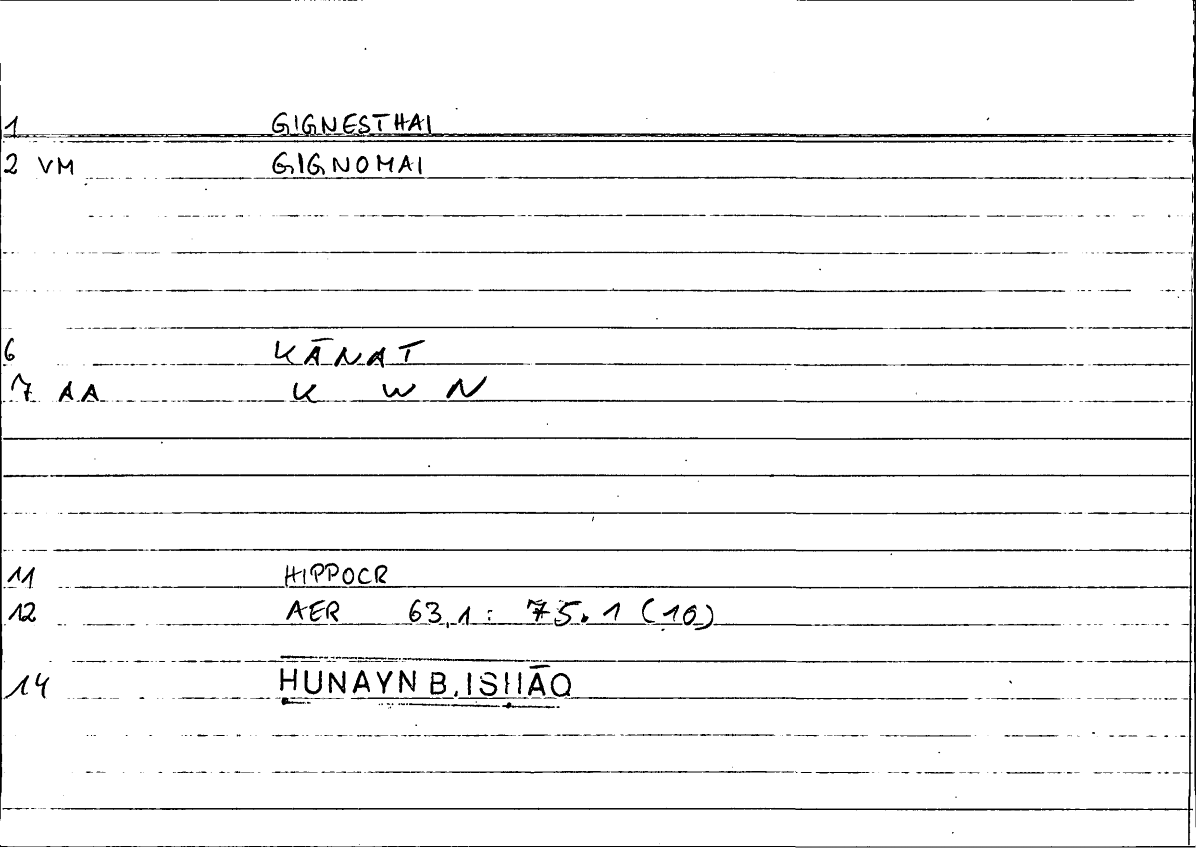 1 GIGNESTHAI
2 VM GIGNOMAI
6 KĀNAT
7 AA K W N
11 HIPPOCR
12 AER 63,1: 75.1 (10)
14 ḤUNAYN B. ISḤĀQ